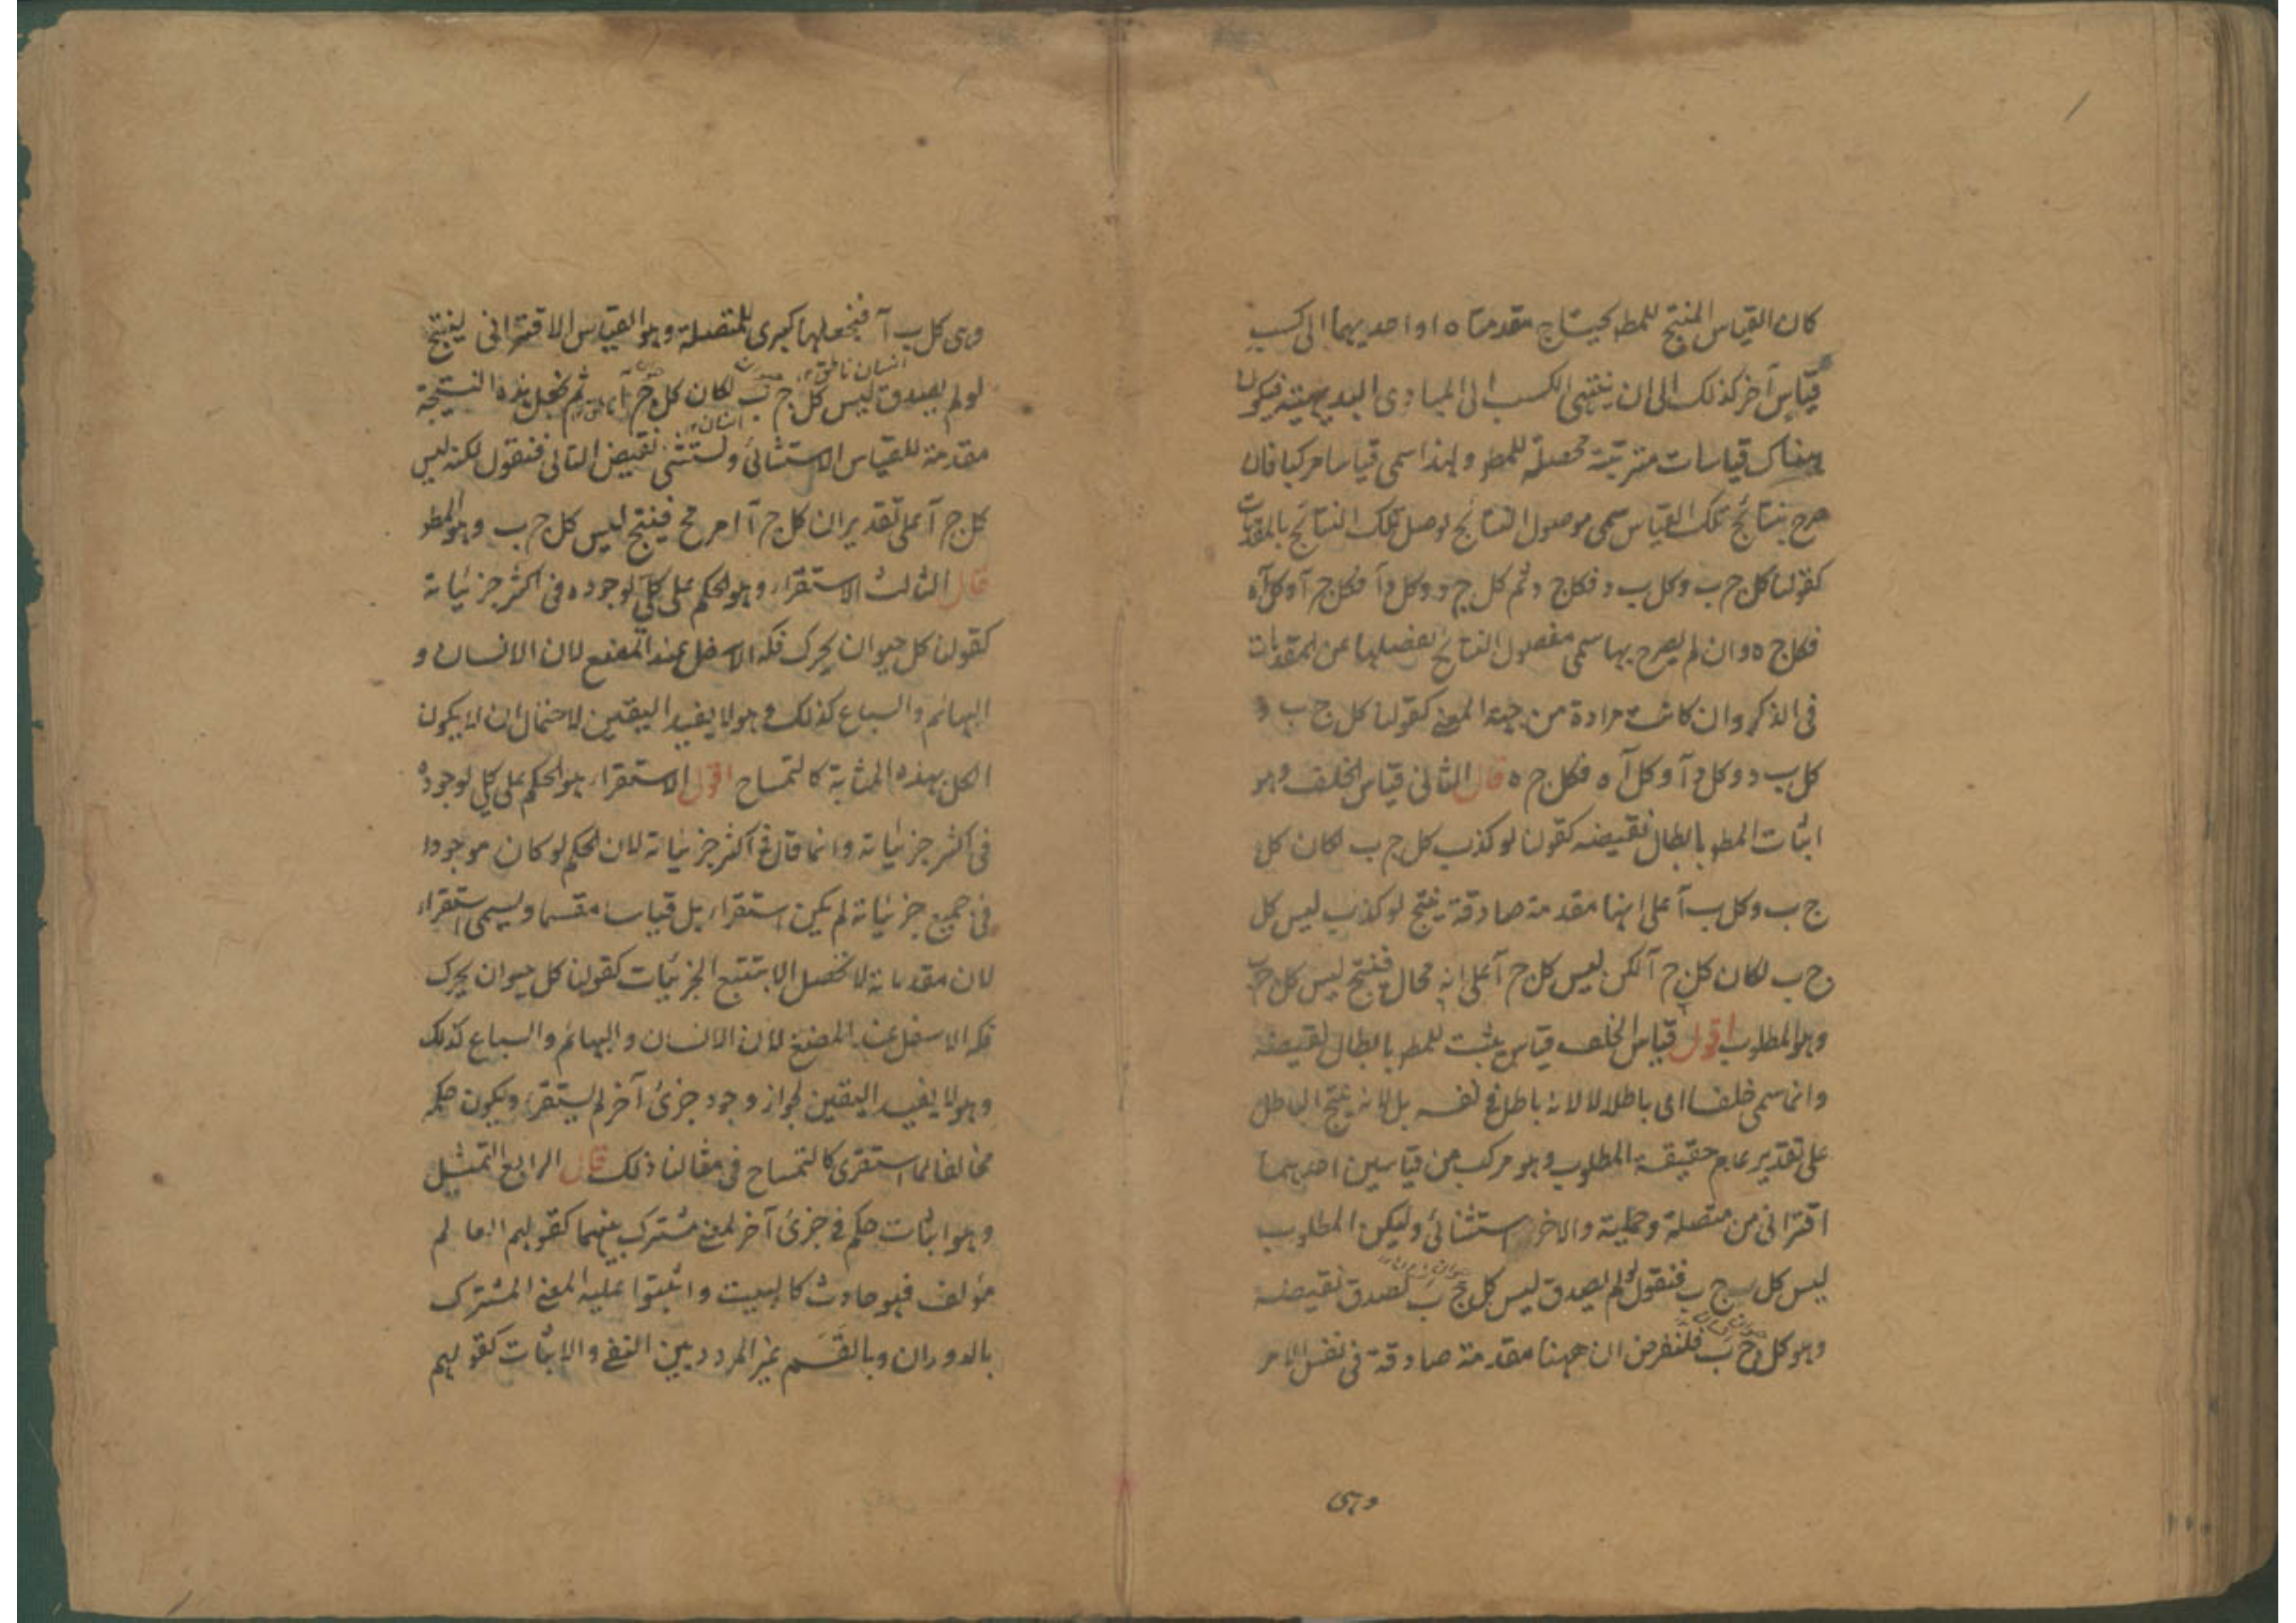 كان القياس المنتج للمط يحتاج مقدمتاه او احديهما الى كسب
قياس آخر كذلك الى ان ينتهى الكسب الى المبادى البديهية فيكون
هناك قياسات مترتبة محصلة للمط ولهذا سمى قياسا مركبا فان
صرح بنتائج تلك القياس سمى موصول النتائج لوصل تلك النتائج بالمقدمات
كقولنا كل ج ب وكل ب د فكل ج د ثم كل ج د وكل د آ فكل ج آ وكل آ ه
فكل ج ه وان لم يصرح بها سمى مفصول النتائج لفصلها عن المقدمات
فى الذكر وان كانت مرادة من جهة المعنے كقولنا كل ج ب و
كل ب د وكل د آ وكل آ ه فكل ج ه قال الثانى قياس الخلف وهو
اثبات المط بابطال نقيضه كقولنا لو كذب كل ج ب لكان كل
ج ب وكل ب آ على انها مقدمة صادقة ينتج لو كذب ليس كل
ج ب لكان كل ج آ لكن ليس كل ج آ على انه محال فينتج ليس كل ج ب
وهو المطلوب اقول قياس الخلف قياس يثبت للمط بابطال نقيضه
وانما سمى خلفا اى باطلا لا لانه باطل فے نفسه بل لانه ينتج الباطل
على تقدير عدم حقيقة المطلوب وهو مركب من قياسين احديهما
اقترانى من متصلة وحملية والاخر استثنائى وليكن المطلوب
ليس كل ج ب فنقول لو لم يصدق ليس كل ج ب لصدق نقيضه
وهو كل ج ب فلنفرض ان ههنا مقدمة صادقة فى نفس الامر
وهى
وهى كل ب آ فنجعلها كبرى للمتصلة وهو القياس الاقترانى لينتج
انسان ناطق
لو لم يصدق ليس كل ج ب لكان كل ج آ ثم نجعل هذه النتيجة
انسان
مقدمة للقياس الاستثنائى ونستثنى نقيض التالى فنقول لكنه ليس
كل ج آ على تقدير ان كل ج آ امر مح فينتج ليس كل ج ب وهو المط
قال الثالث الاستقراء وهو الحكم على كلى لوجوده فى اكثر جزئياته
كقولنا كل حيوان يحرك فكه الاسفل عند المضغ لان الانسان و
البهائم والسباع كذلك وهو لا يفيد اليقين لاحتمال ان لا يكون
الكل بهذه المثابة كالتمساح اقول الاستقراء هو الحكم على كلى لوجوده
فى اكثر جزئياته وانما قال فے اكثر جزئياته لان الحكم لو كان موجودا
فى جميع جزئياته لم يكن استقراء بل قياسا مقسما ويسمى استقراء
لان مقدماته لا تحصل الا بتتبع الجزئيات كقولنا كل حيوان يحرك
فكه الاسفل عند المضغ لان الانسان والبهائم والسباع كذلك
وهو لا يفيد اليقين لجواز وجود جزئ آخر لم يستقرء ويكون حكمه
مخالفا لما استقرى كالتمساح فى مثالنا ذلك قال الرابع التمثيل
وهو اثبات حكم فے جزئ آخر لمعنے مشترك بينهما كقولهم العالم
مؤلف فهو حادث كالبيت واثبتوا عليه المعنے المشترك
بالدوران وبالقسم غير المردد بين النفے والاثبات كقولهم